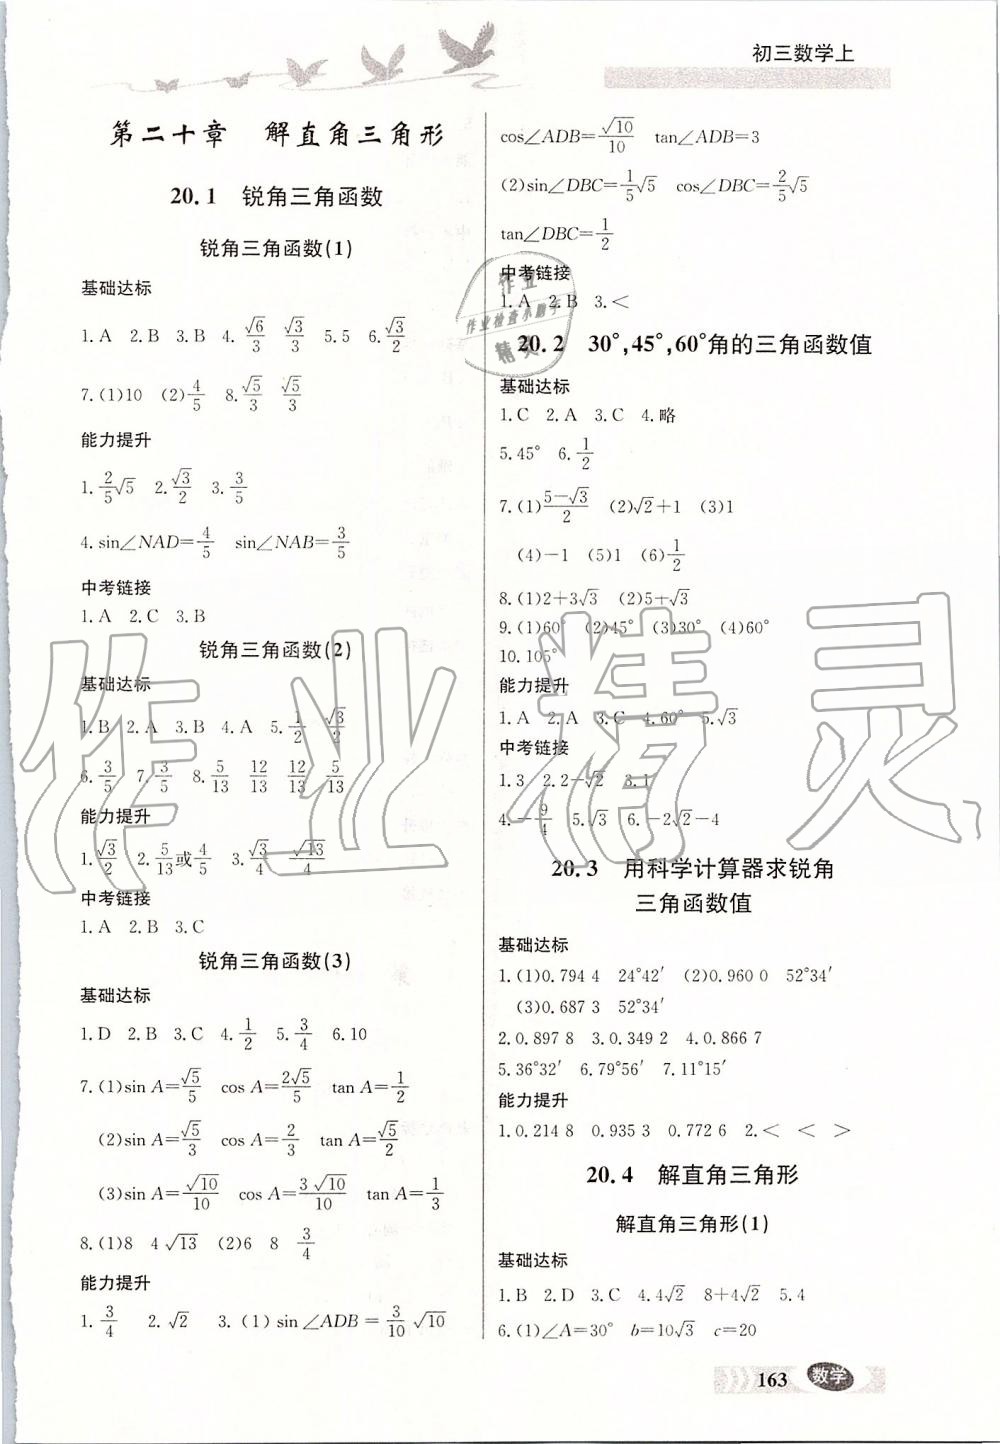 初三数学上
第二十章 解直角三角形
20.1 锐角三角函数
锐角三角函数(1)
基础达标
1.A 2.B 3.B 4.√6/3 √3/3 5.5 6.√3/2
7.(1)10 (2)4/5 8.√5/3 √5/3
能力提升
1.2/5√5 2.√3/2 3.3/5
4.sin∠NAD=4/5 sin∠NAB=3/5
中考链接
1.A 2.C 3.B
锐角三角函数(2)
基础达标
1.B 2.A 3.B 4.A 5.1/2 √3/2
6.3/5 7.3/5 8.5/13 12/13 12/13 5/13
能力提升
1.√3/2 2.5/13或4/5 3.√3/4 √13/4
中考链接
1.A 2.B 3.C
锐角三角函数(3)
基础达标
1.D 2.B 3.C 4.1/2 5.3/4 6.10
7.(1)sin A=√5/5 cos A=2√5/5 tan A=1/2
(2)sin A=√5/3 cos A=2/3 tan A=√5/2
(3)sin A=√10/10 cos A=3√10/10 tan A=1/3
8.(1)8 4√13 (2)6 8 3/4
能力提升
1.3/4 2.√2 3.(1)sin∠ADB=3/10√10
cos∠ADB=√10/10 tan∠ADB=3
(2)sin∠DBC=1/5√5 cos∠DBC=2/5√5
tan∠DBC=1/2
中考链接
1.A 2.B 3.<
20.2 30°,45°,60°角的三角函数值
基础达标
1.C 2.A 3.C 4.略
5.45° 6.1/2
7.(1)5-√3/2 (2)√2+1 (3)1
(4)-1 (5)1 (6)1/2
8.(1)2+3√3 (2)5+√3
9.(1)60° (2)45° (3)30° (4)60°
10.105°
能力提升
1.A 2.A 3.C 4.60° 5.√3
中考链接
1.3 2.2-√2 3.1
4.-9/4 5.√3 6.-2√2-4
20.3 用科学计算器求锐角
三角函数值
基础达标
1.(1)0.794 4 24°42′ (2)0.960 0 52°34′
(3)0.687 3 52°34′
2.0.897 8 3.0.349 2 4.0.866 7
5.36°32′ 6.79°56′ 7.11°55′
能力提升
1.0.214 8 0.935 3 0.772 6 2.< < >
20.4 解直角三角形
解直角三角形(1)
基础达标
1.B 2.D 3.C 4.4√2 8+4√2 5.4
6.(1)∠A=30° b=10√3 c=20
163 数学
作业精灵
作业
作业检查小助手